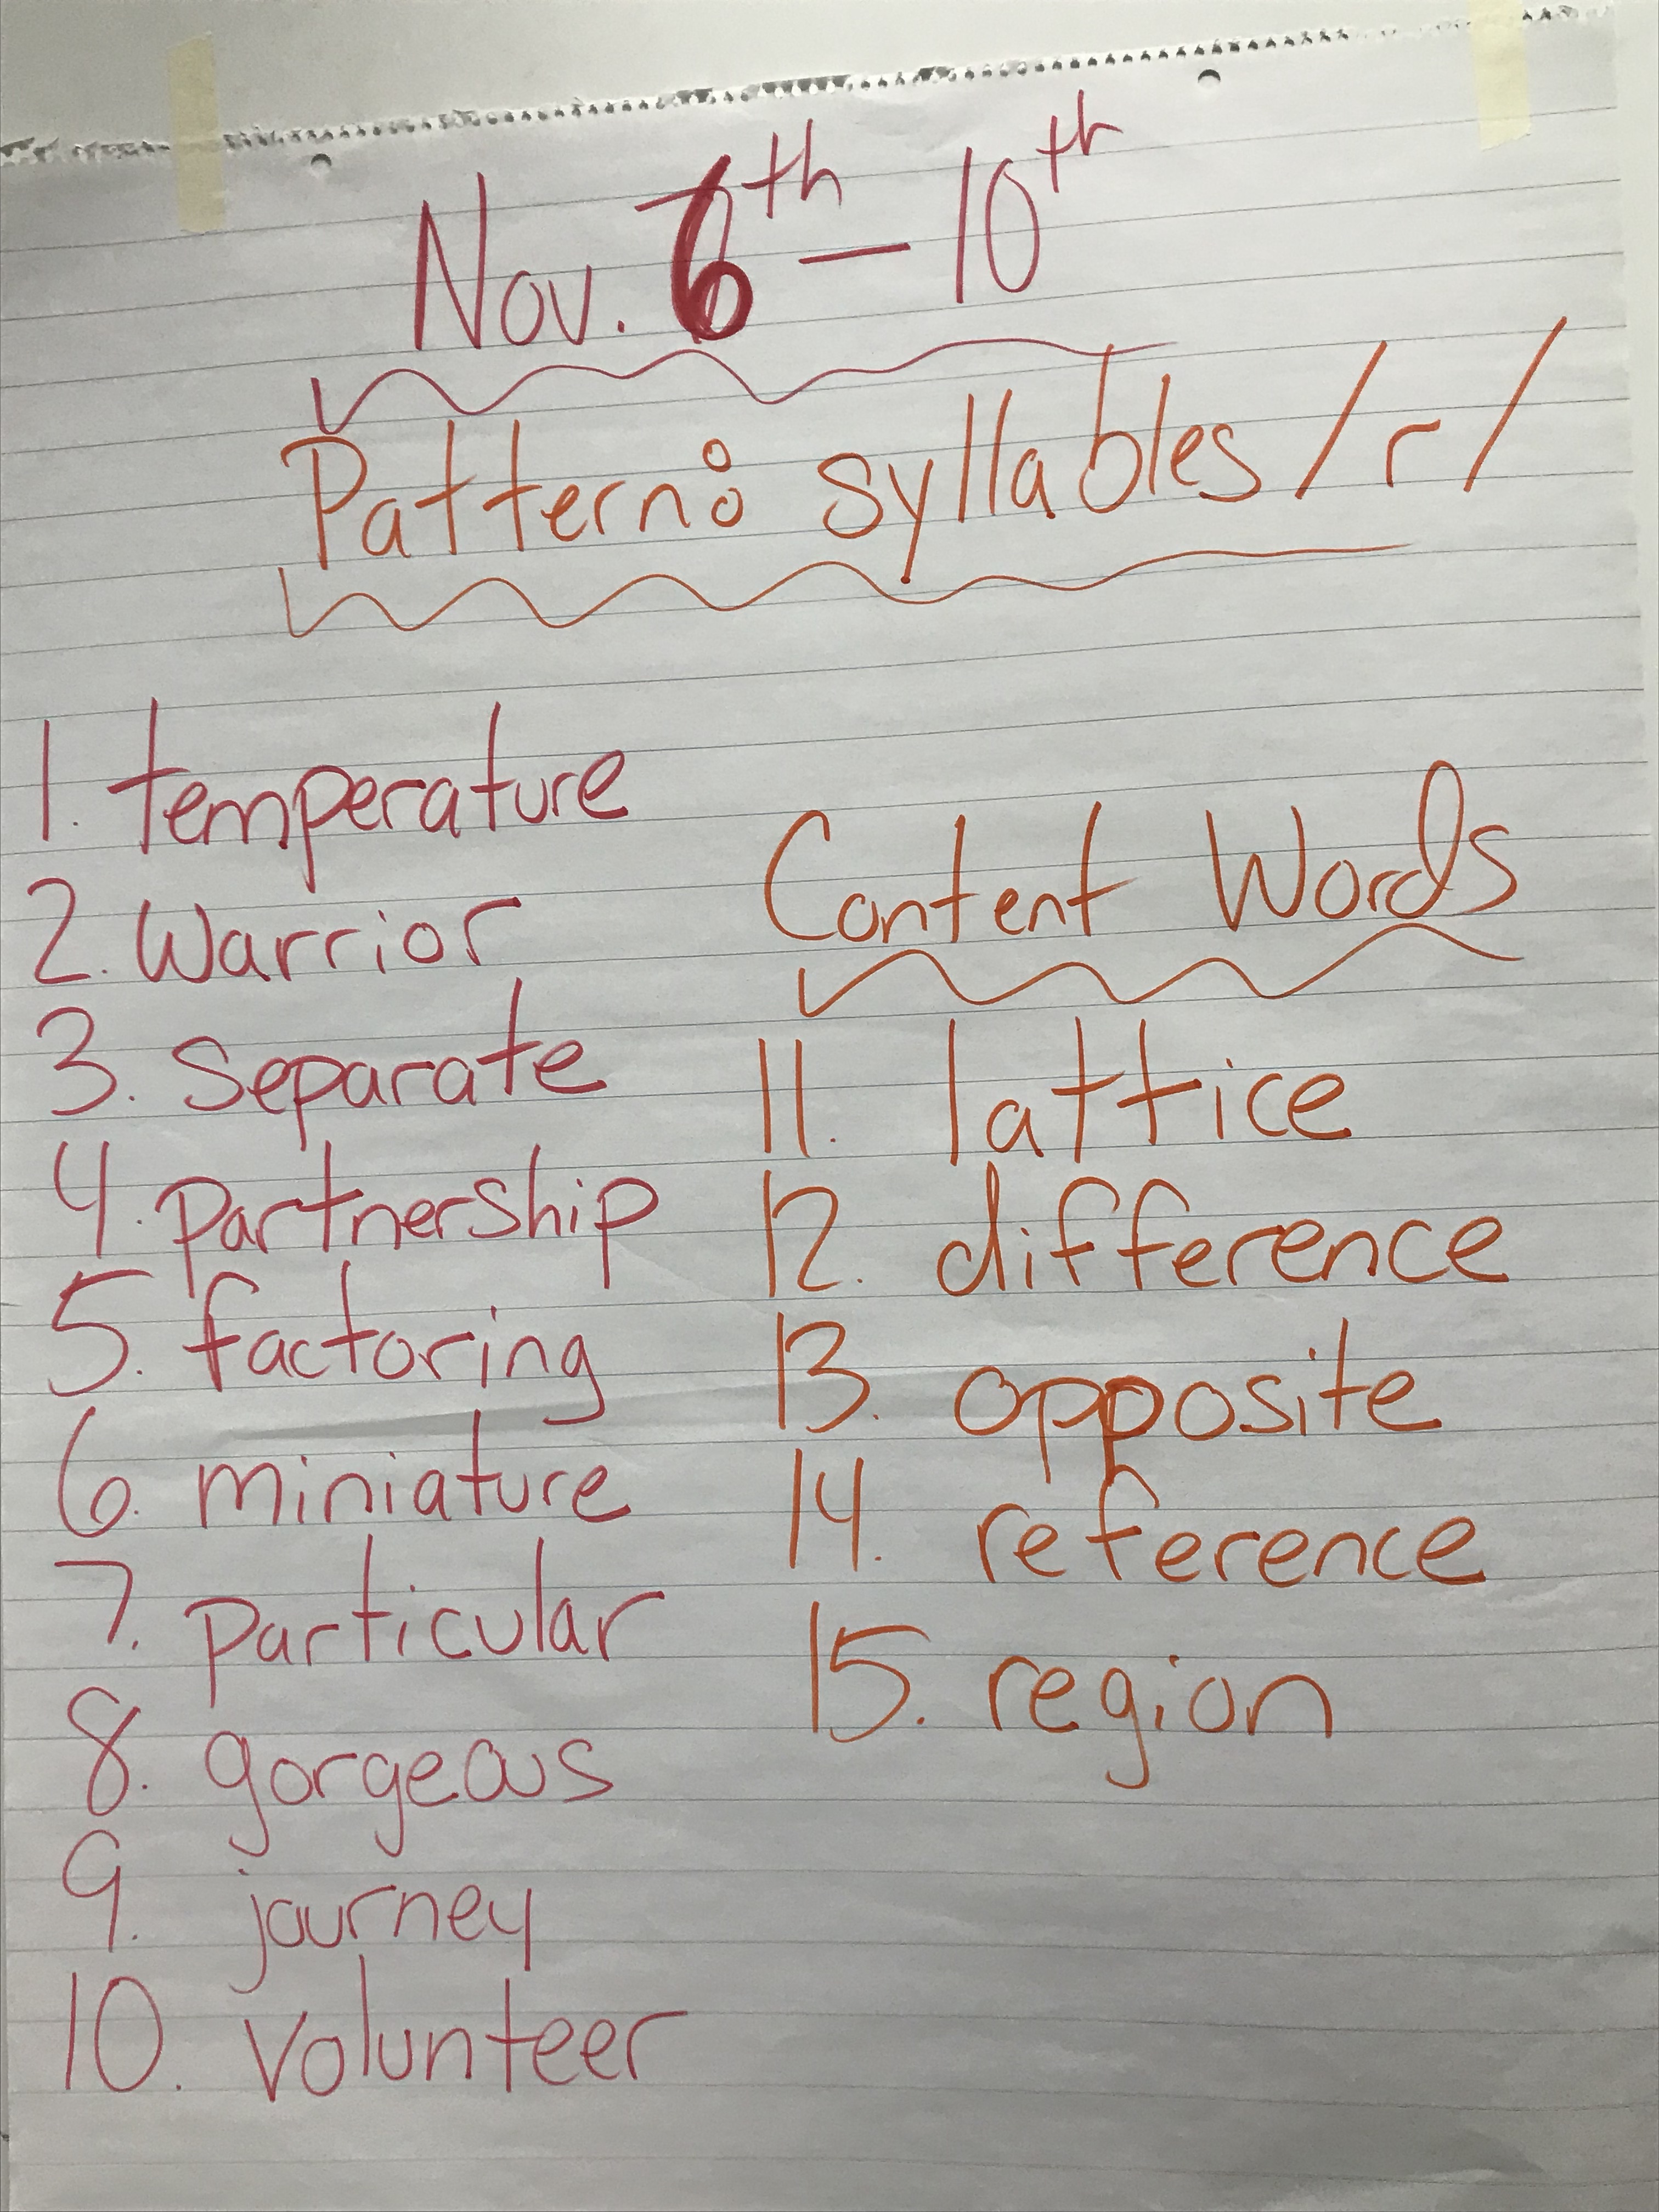 Nov. 6th - 10th
Pattern: syllables /r/
1. temperature
2. Warrior
3. separate
4. partnership
5. factoring
6. miniature
7. particular
8. gorgeous
9. journey
10. volunteer
Content Words
11. lattice
12. difference
13. opposite
14. reference
15. region